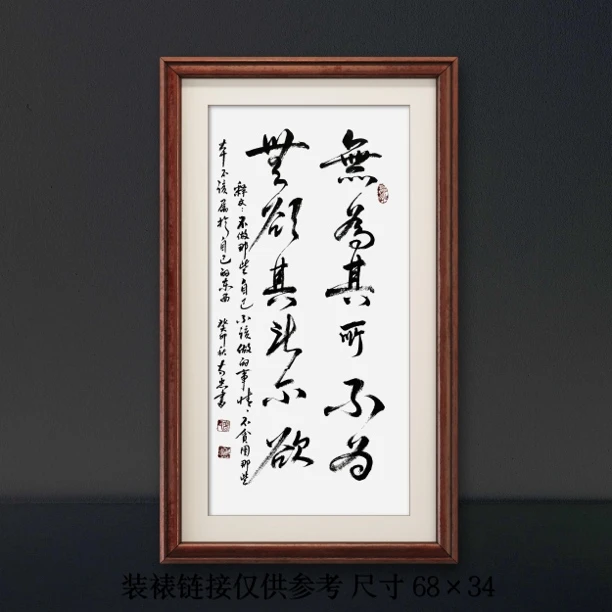 無為其所不為
無欲其所不欲
释文：不做那些自己不该做的事情，不貪图那些
本不该属於自己的东西 癸卯秋 書
装裱链接仅供参考 尺寸 68×34